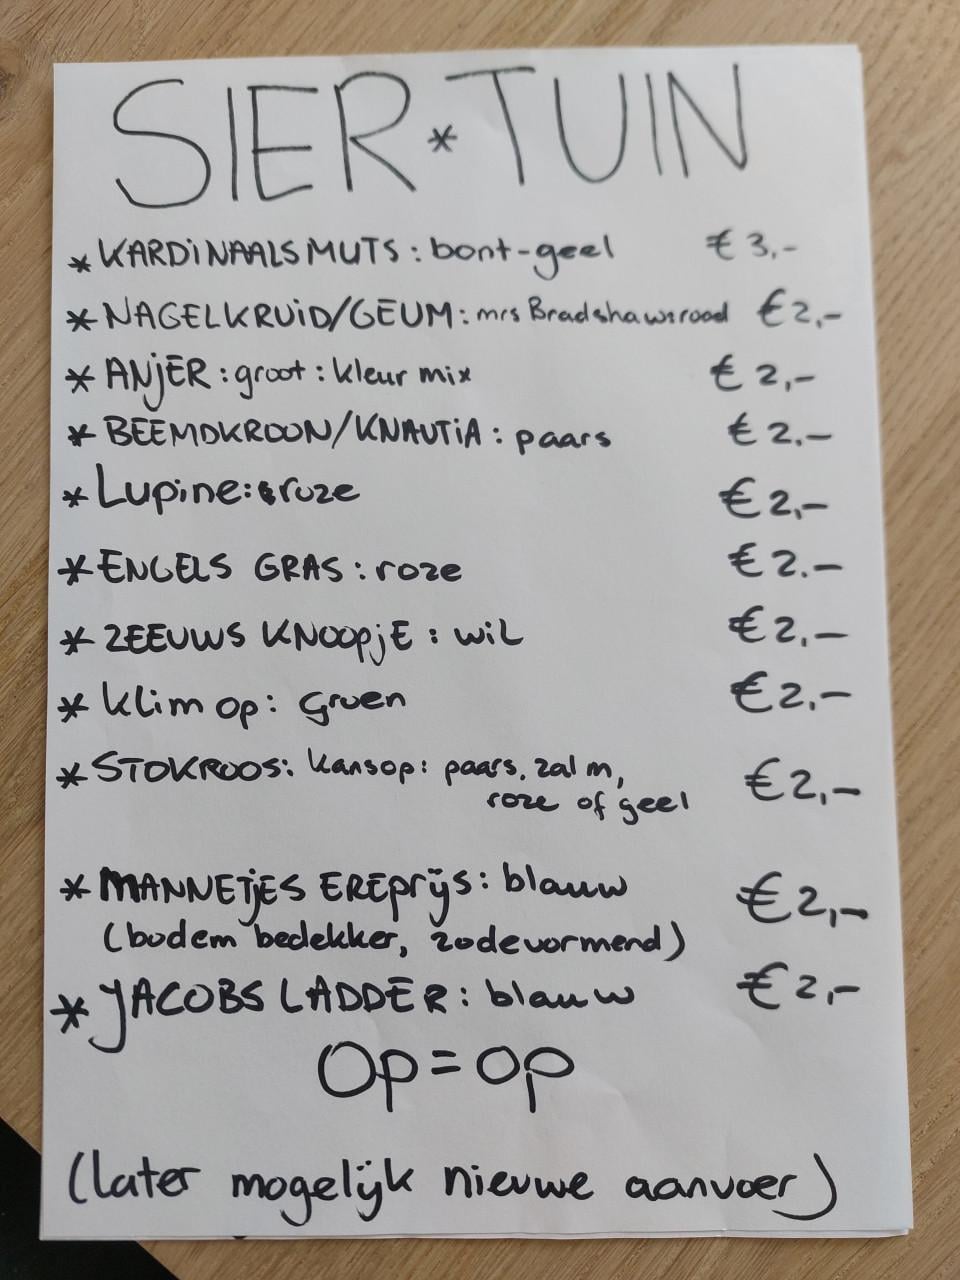 SIER*TUIN
* KARDINAALSMUTS: bont-geel € 3,-
* NAGELKRUID/GEUM: mrs Bradshaw:rood € 2,-
* ANJER: groot: kleur mix € 2,-
* BEEMDKROON/KNAUTIA: paars € 2.-
* Lupine: roze € 2,-
* ENGELS GRAS: roze € 2.-
* ZEEUWS KNOOPJE: wit € 2,-
* Klim op: Groen € 2.-
* STOKROOS: Kansop: paars, zalm, € 2,-
roze of geel
* MANNETJES EREPRIJS: blauw € 2,-
(bodem bedekker, zodevormend)
* JACOBS LADDER: blauw € 2,-
Op = op
(later mogelijk nieuwe aanvoer)